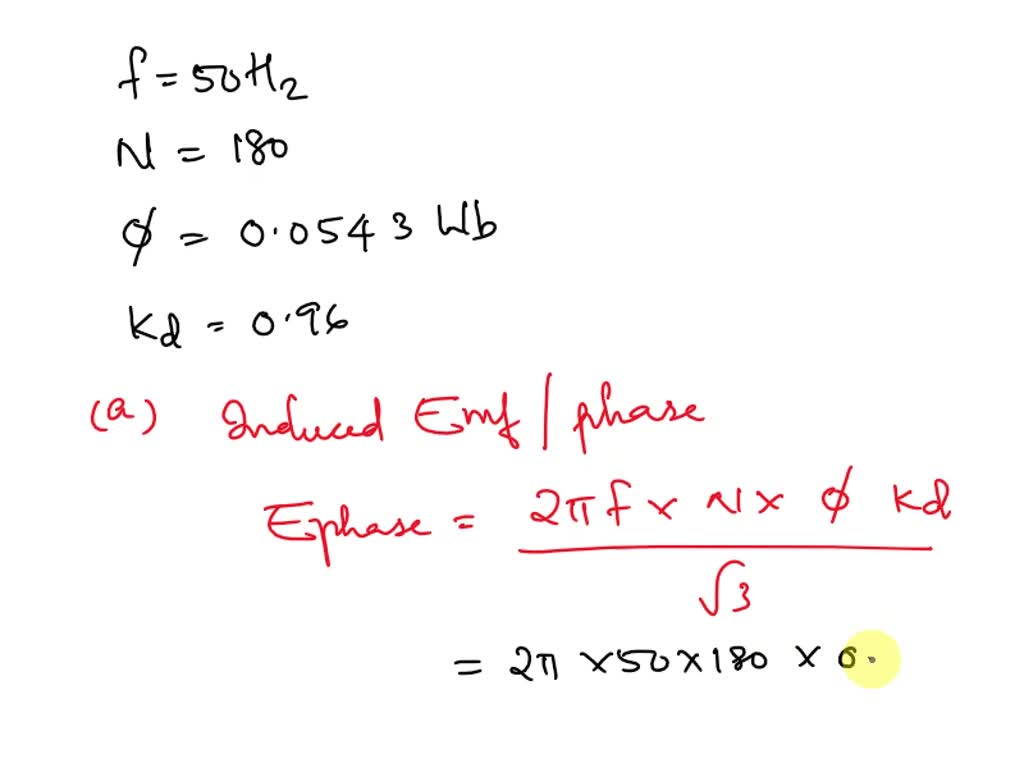 f = 50Hz
N = 180
ϕ = 0.0543 Wb
Kd = 0.96
(a) Induced Emf / phase
Ephase = 2πf × N × ϕ Kd
√3
= 2π × 50 × 180 × 0.